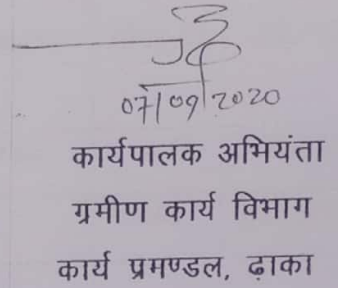 07/09/2020
कार्यपालक अभियंता
ग्रमीण कार्य विभाग
कार्य प्रमण्डल, ढ़ाका